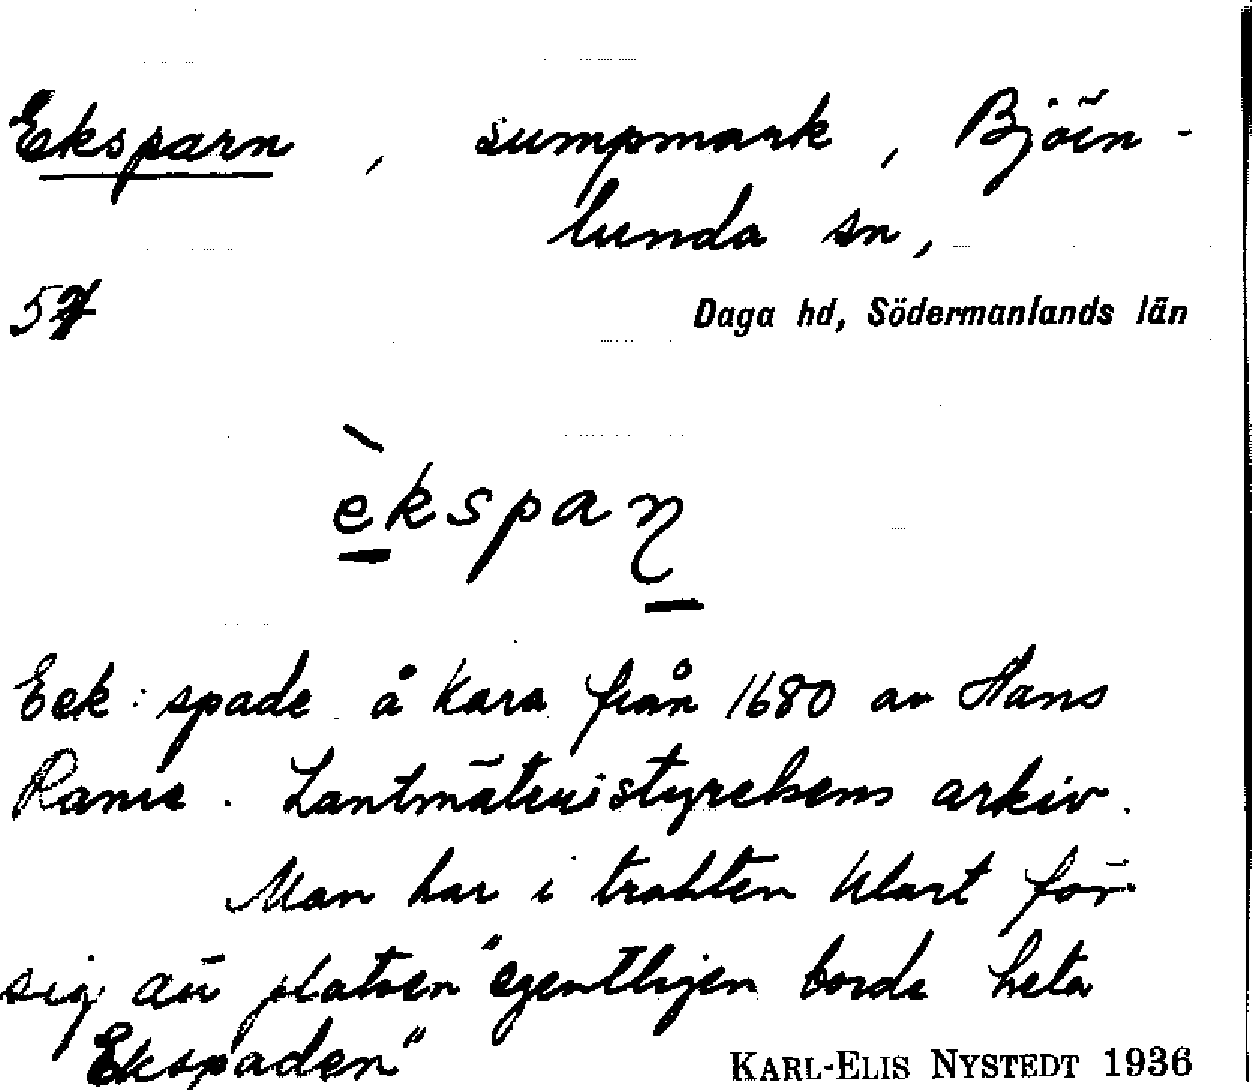 Eksparn, sumpmark, Björn-
lunda sn,
Daga hd, Södermanlands län
èkspaɳ
Eek: spade å Kara från 1680 av Hans
Ranie. Lantmäteristyrelsens arkiv.
Man har i trakten klart för
sig att platsen "egentligen borde heta
Ekspaden"
KARL-ELIS NYSTEDT 1936